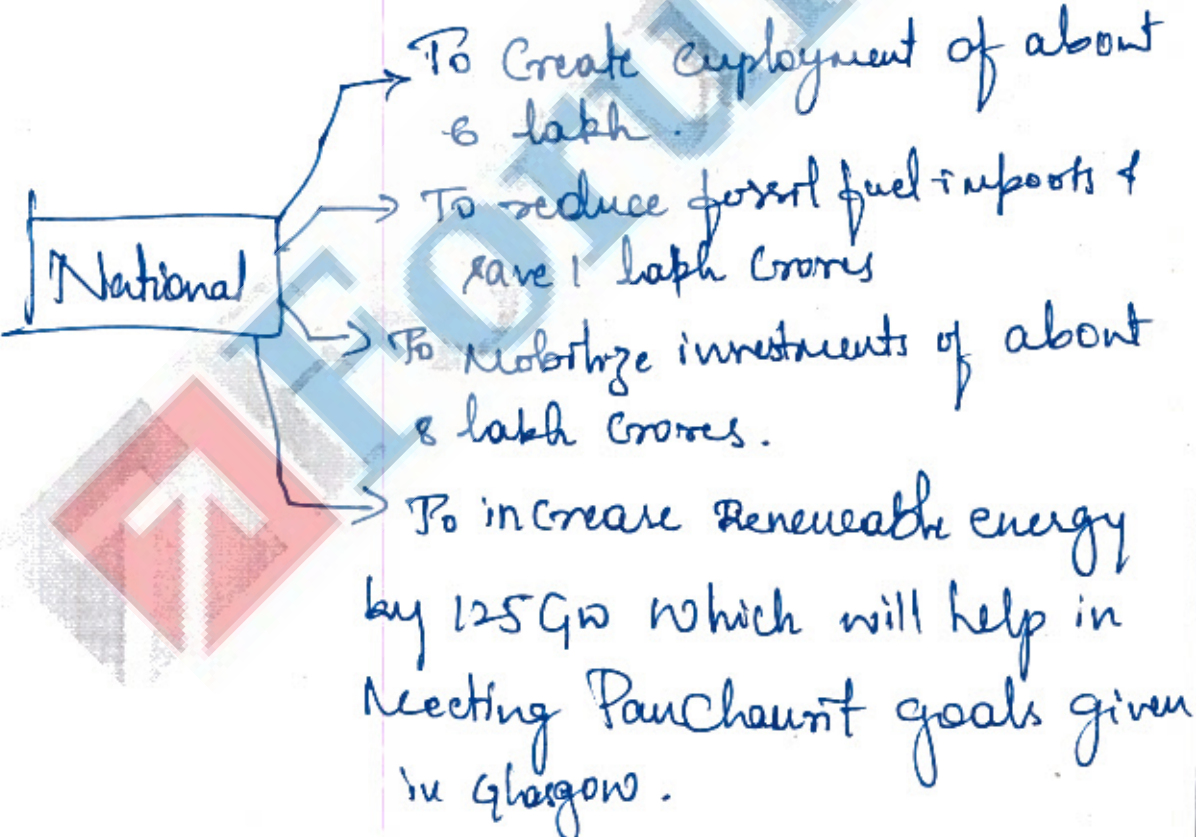 To Create employment of about
6 lakh.
National
To reduce fossil fuel imports &
save 1 lakh Crores
To Mobilize investments of about
8 lakh Crores.
To increase Renewable energy
by 125 GW which will help in
Meeting Panchamrit goals given
in Glasgow.
Forum